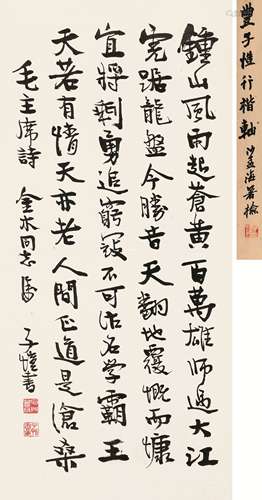 豐子愷行楷軸 沙孟海署檢
鍾山風雨起蒼黃百萬雄師過大江
虎踞龍盤今勝昔天翻地覆慨而慷
宜將剩勇追窮寇不可沽名学霸王
天若有情天亦老人間正道是滄桑
毛主席詩 同志属 子愷書